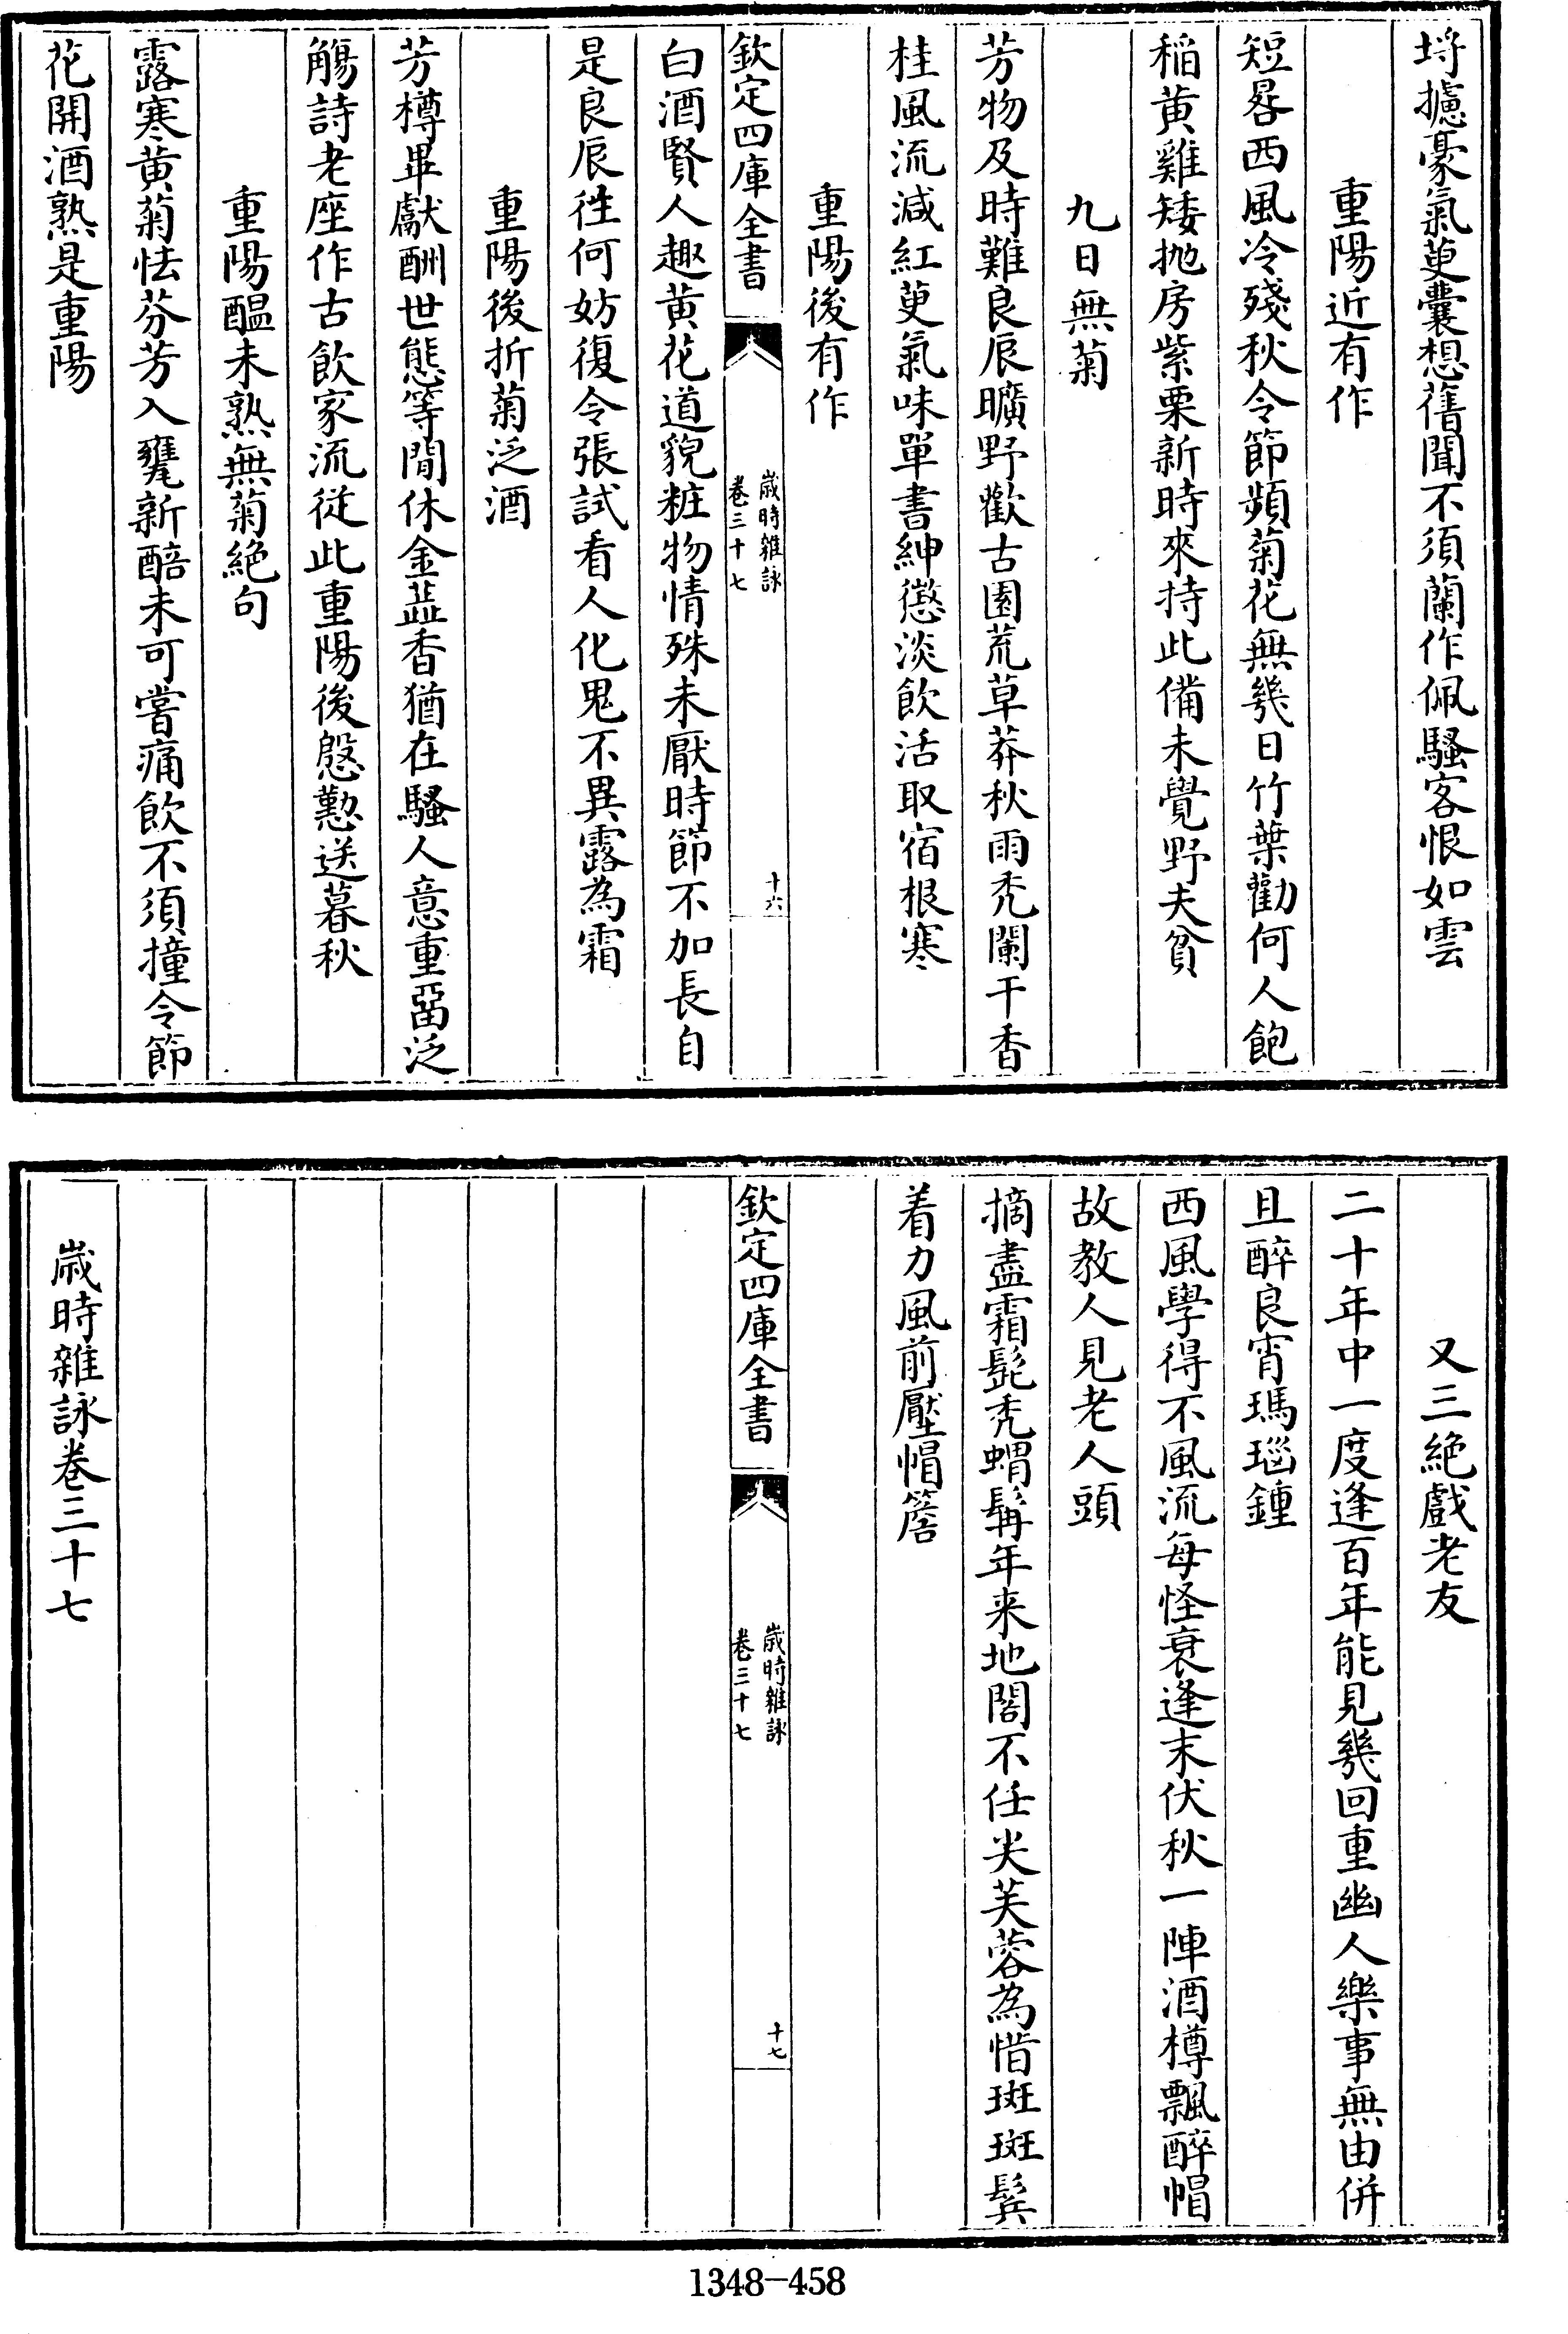 埒攄豪氣萸囊想舊聞不須蘭作佩騷客恨如雲
重陽近有作
短晷西風冷殘秋令節頻菊花無幾日竹葉勸何人飽
稲黄雞矮抛房紫栗新時來持此備未覺野夫貧
九日無菊
芳物及時難良辰曠野歡古園荒草莽秋雨禿闌干香
桂風流減紅萸氣味單書紳懲淡飲活取宿根寒
重陽後有作
欽定四庫全書
歲時雜詠
卷三十七
十六
白酒賢人趣黄花道貌粧物情殊未厭時節不加長自
是良辰徃何妨復令張試看人化鬼不異露為霜
重陽後折菊泛酒
芳樽畢獻酬世態等閒休金蘂香猶在騷人意重留泛
觴詩老座作古飲家流從此重陽後慇懃送暮秋
重陽醖未熟無菊絶句
露寒黄菊怯芬芳入甕新醅未可嘗痛飲不須撞令節
花開酒熟是重陽
又三絶戲老友
二十年中一度逢百年能見幾回重幽人樂事無由併
且醉良宵瑪瑙鍾
西風學得不風流每怪衰逢末伏秋一陣酒樽飄醉帽
故教人見老人頭
摘盡霜髭禿蝟髯年来地閣不任尖芙蓉為惜斑斑鬂
着力風前壓帽簷
欽定四庫全書
歲時雜詠
卷三十七
十七
歲時雜詠卷三十七
1348-458